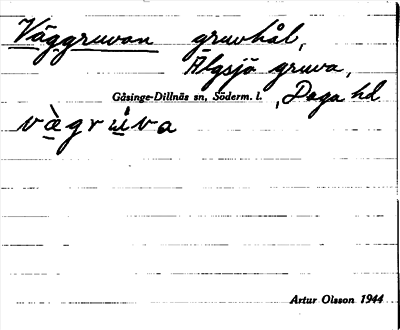 Väggruvan gruvhål,
Älgsjö gruva,
Gåsinge-Dillnäs sn, Söderm. l. , Daga hd
vàgrúva
Artur Olsson 1944